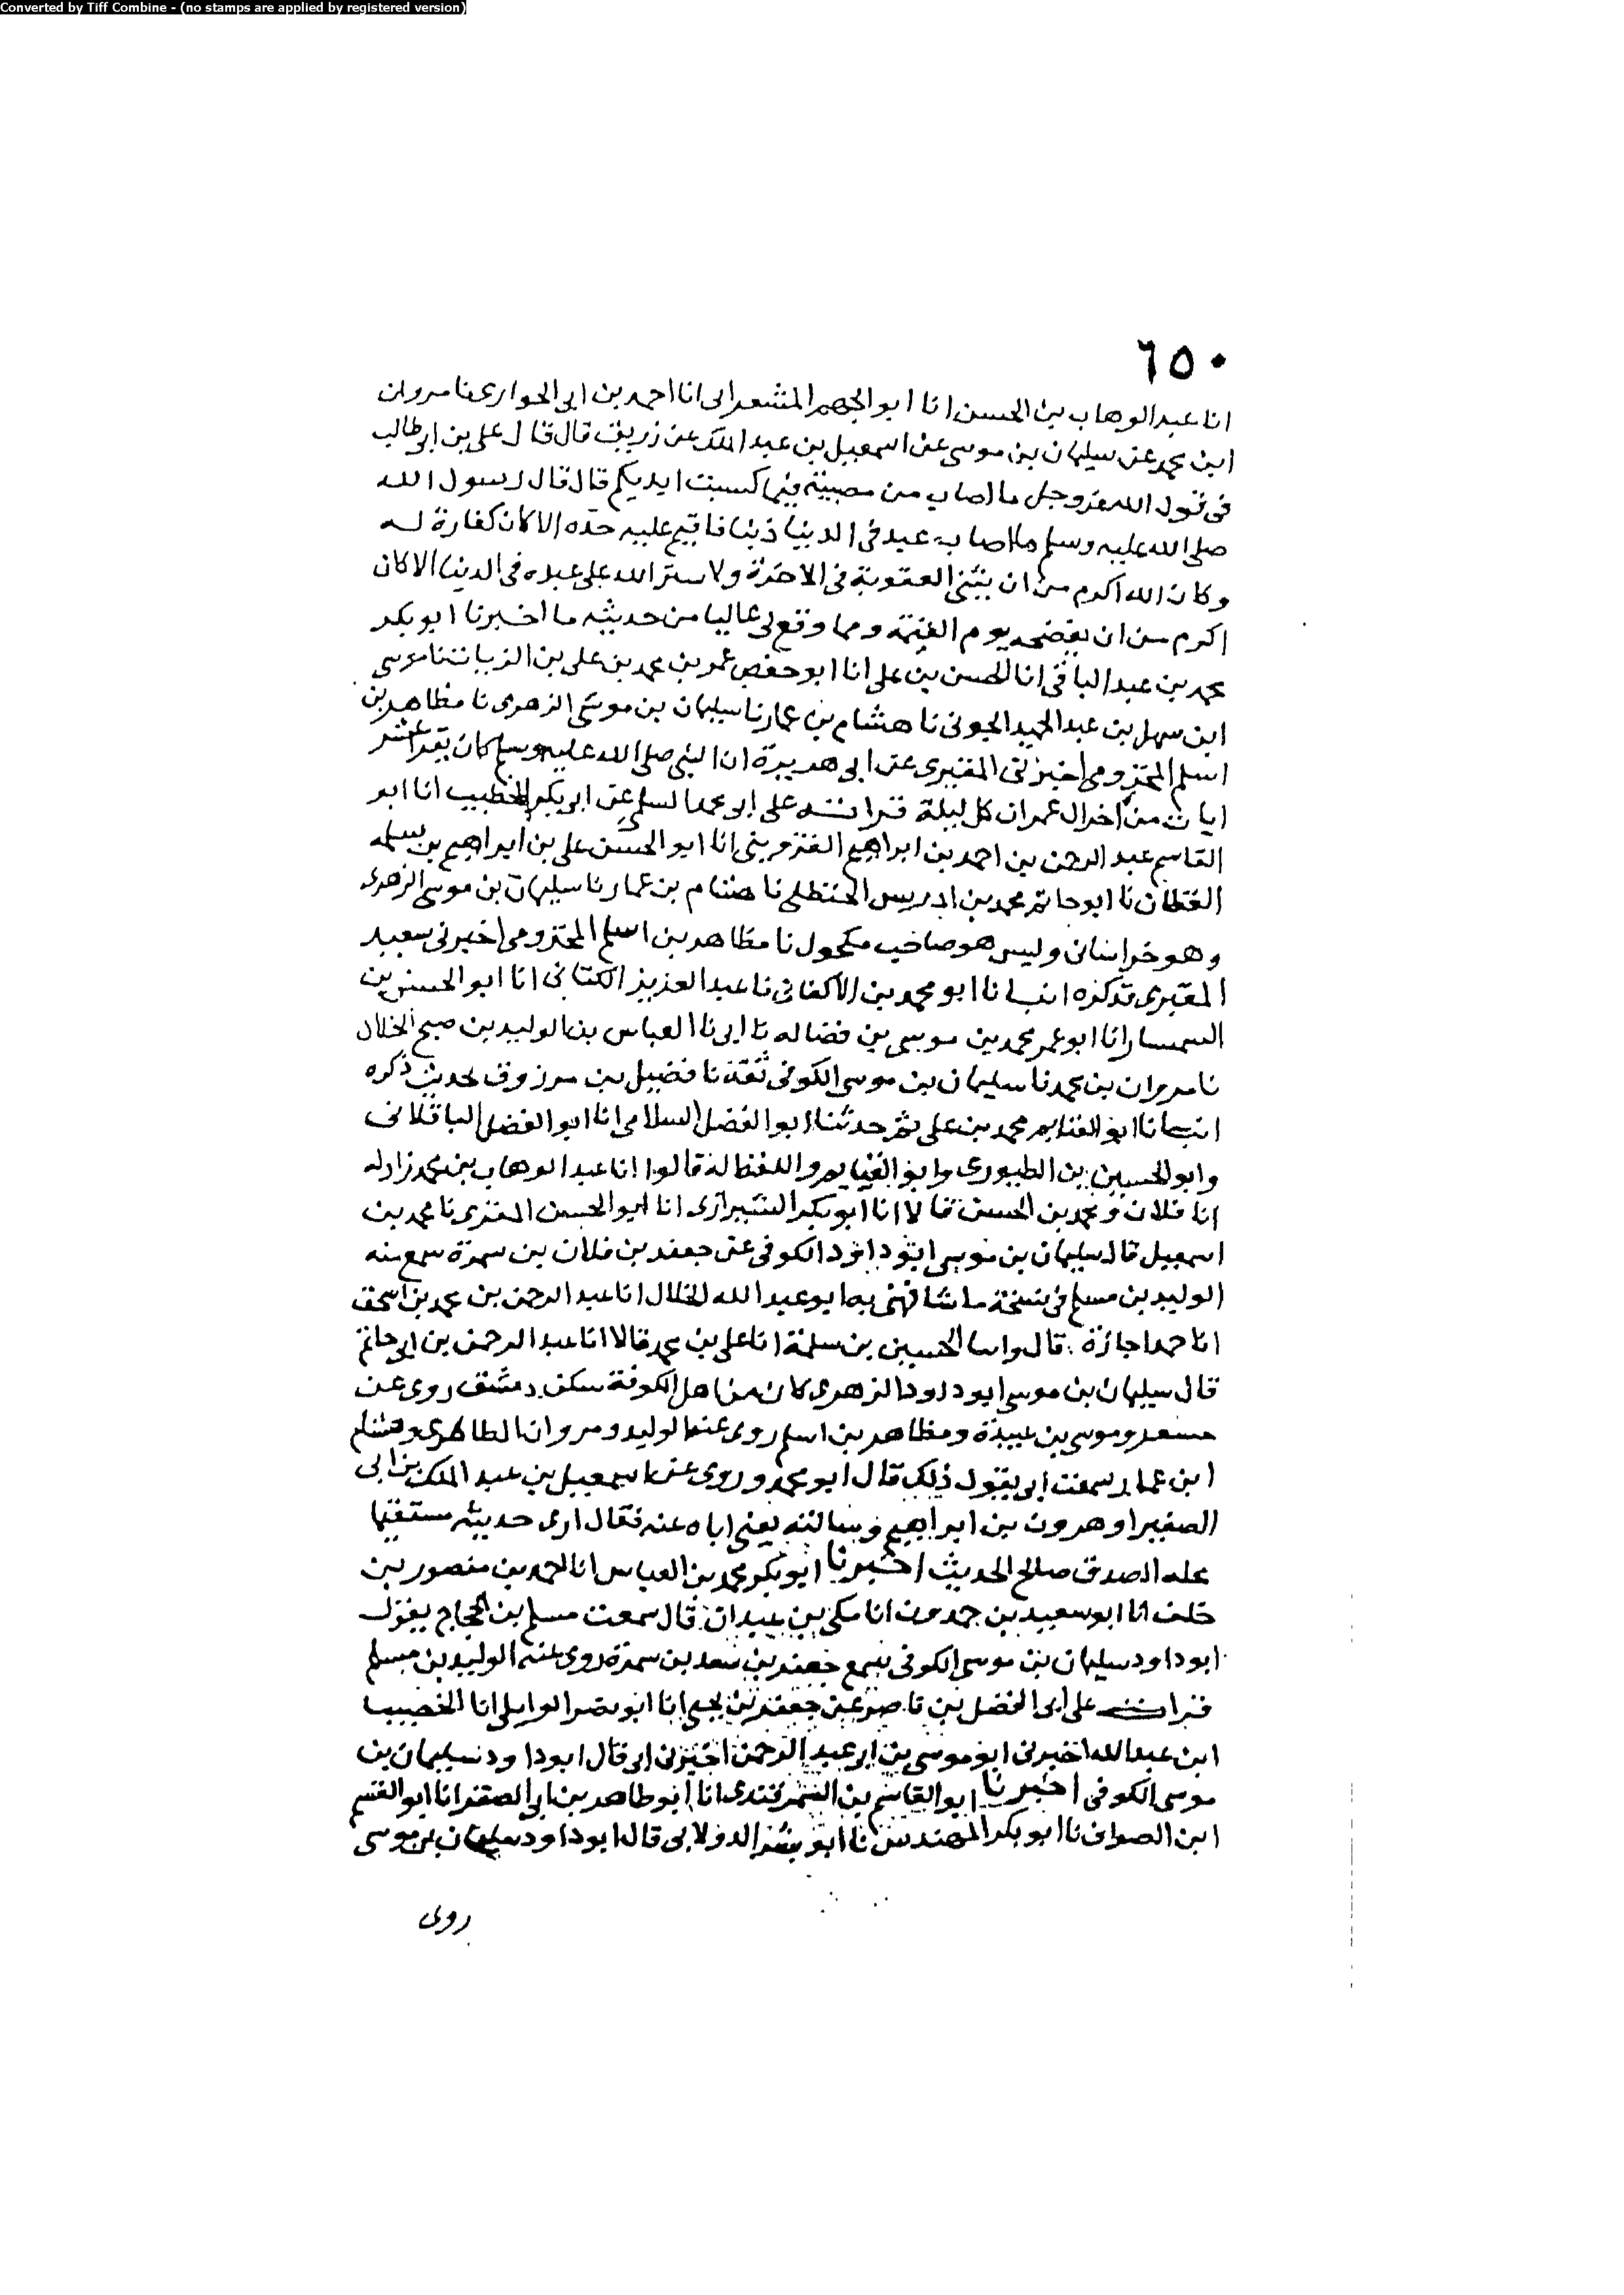 Converted by Tiff Combine - (no stamps are applied by registered version)
٦٥٠
انا عبد الوهاب بن الحسن انا ابو الجهم المشعرانى انا احمد بن ابى الحوارى نا مروان
ابن محمد عن سليمان بن موسى عن اسمعيل بن عبد الملك عن زريق قال قال على بن ابى طالب
فى قول الله عز وجل ما اصاب من مصيبة فبما كسبت ايديكم قال قال رسول الله
صلى الله عليه وسلم ما اصاب عبد فى الدنيا ذنبا فاقيم عليه حده الا كان كفارة له
وكان الله اكرم من ان يثنى العقوبة فى الاخرة ولا ستر الله على عبده فى الدنيا الا كان
اكرم من ان يفضحه يوم القيمة ومما وقع لى عاليا من حديثه ما اخبرنا ابو بكر
محمد بن عبد الباقى انا الحسن بن على انا ابو حفص عمر بن محمد بن على بن الزيات نا موسى
ابن سهل بن عبد الحميد الجونى نا هشام بن عمار نا سليمان بن موسى الزهرى نا مظاهر بن
اسلم المخزومى اخبرنى المقبرى عن ابى هريرة ان النبى صلى الله عليه وسلم كان يقرا عشر
ايات من اخر ال عمران كل ليلة قرات على ابى محمد السلمى عن ابى بكر الخطيب انا ابو
القاسم عبد الرحمن بن احمد بن ابراهيم القزوينى انا ابو الحسن على بن ابراهيم بن سلمه
القطان نا ابو حاتم محمد بن ادريس الحنظلى نا هشام بن عمار نا سليمان بن موسى الزهرى
وهو خراسانى وليس هو صاحب مكحول نا مظاهر بن اسلم المخزومى اخبرنى سعيد
المقبرى فذكره انبانا ابو محمد بن الاكفانى نا عبد العزيز الكتانى انا ابو الحسن بن
السمسار انا ابو عمر محمد بن موسى بن فضاله نا ابى نا العباس بن الوليد بن صبح الخلال
نا مروان بن محمد نا سليمان بن موسى الكوفى ثقة نا فضيل بن مرزوق بحديث ذكره
انبانا ابو الغنايم محمد بن على ثم حدثنا ابو الفضل السلامى انا ابو الفضل الباقلانى
وابو الحسين بن الطيورى وابو الغنايم واللفظ له قالوا انا عبد الوهاب بن محمد زاد له
انا فلان ومحمد بن الحسن قالا انا ابو بكر الشيرازى انا ابو الحسن المقرى نا محمد بن
اسمعيل قال سليمان بن موسى ابو داود الكوفى عن جعفر بن فلان بن سمرة سمع منه
الوليد بن مسلم فى نسخة ما شافهنى به ابو عبد الله الخلال انا عبد الرحمن بن محمد بن اسحق
انا حمد اجازة قال وانا الحسين بن سلمة انا على بن محمد قالا انا عبد الرحمن بن ابى حاتم
قال سليمان بن موسى ابو داود الزهرى كان من اهل الكوفة سكن دمشق روى عن
مسعر وموسى بن عبيدة ومظاهر بن اسلم روى عنه الوليد ومروان الطاطرى وهشام
ابن عمار سمعت ابى يقول ذلك قال ابو محمد وروى عن اسمعيل بن عبد الملك بن ابى
الصفير وهرون بن ابراهيم وسالته يعنى اباه عنه فقال ارى حديثه مستقيما
محله الصدق صالح الحديث اخبرنا ابو بكر محمد بن العباس انا احمد بن منصور بن
خلف انا ابو سعيد بن حمدون انا مكى بن عبدان قال سمعت مسلم بن الحجاج يقول
ابو داود سليمان بن موسى الكوفى سمع جعفر بن سعد بن سمرة روى عنه الوليد بن مسلم
قرات على ابى الفضل بن ناصر عن جعفر بن يحيى انا ابو نصر الوايلى انا الخصيب
ابن عبد الله اخبرنى ابو موسى بن ابى عبد الرحمن اخبرنى ابى قال ابو داود سليمان بن
موسى الكوفى اخبرنا ابو القاسم بن السمرقندى انا ابو طاهر بن ابى الصقر انا ابو القسم
ابن الصواف نا ابو بكر المهندس نا ابو بشر الدولابى قال ابو داود سليمان بن موسى
روى